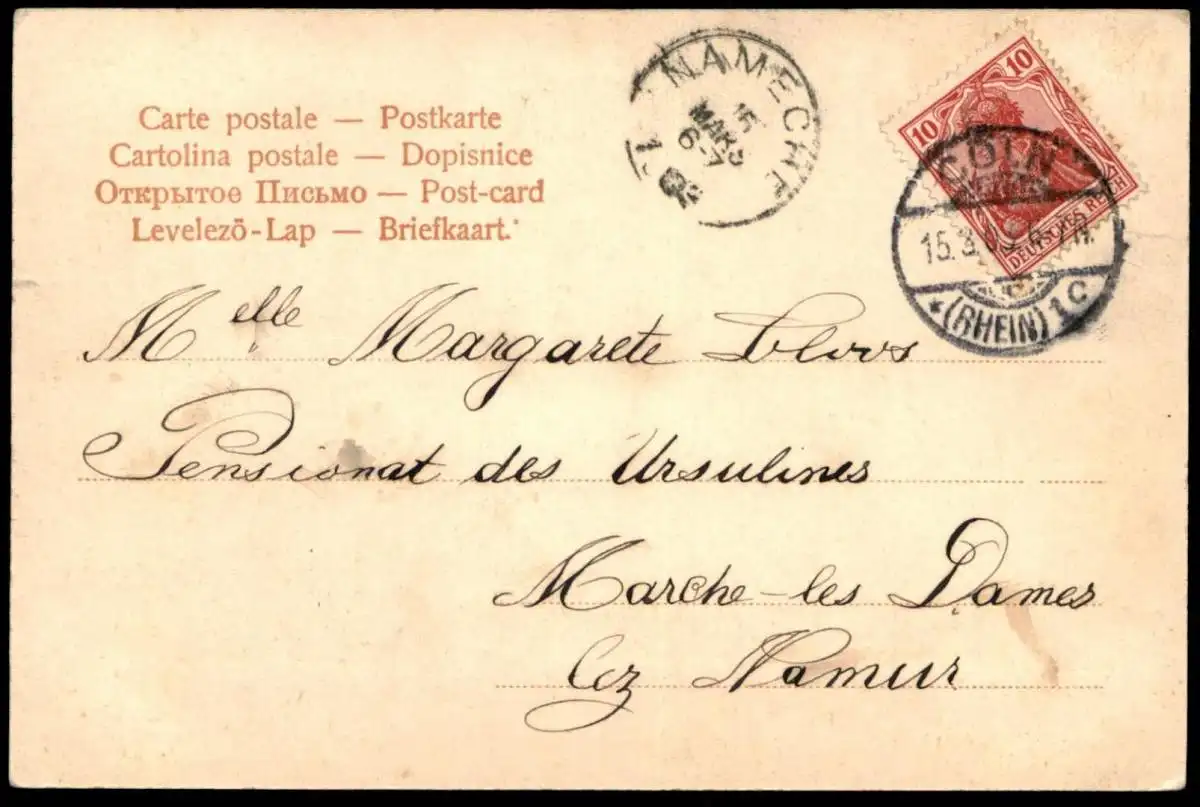 Carte postale — Postkarte
Cartolina postale — Dopisnice
Открытое Письмо — Post-card
Levelező-Lap — Briefkaart.
NAMECHE
15
MARS
6-7
10
10
DEUTSCHES REICH
CÖLN
15.3.05.
* (RHEIN) 1 C
Melle Margarete Cloos
Pensionat des Ursulines
Marche-les Dames
lez Namur